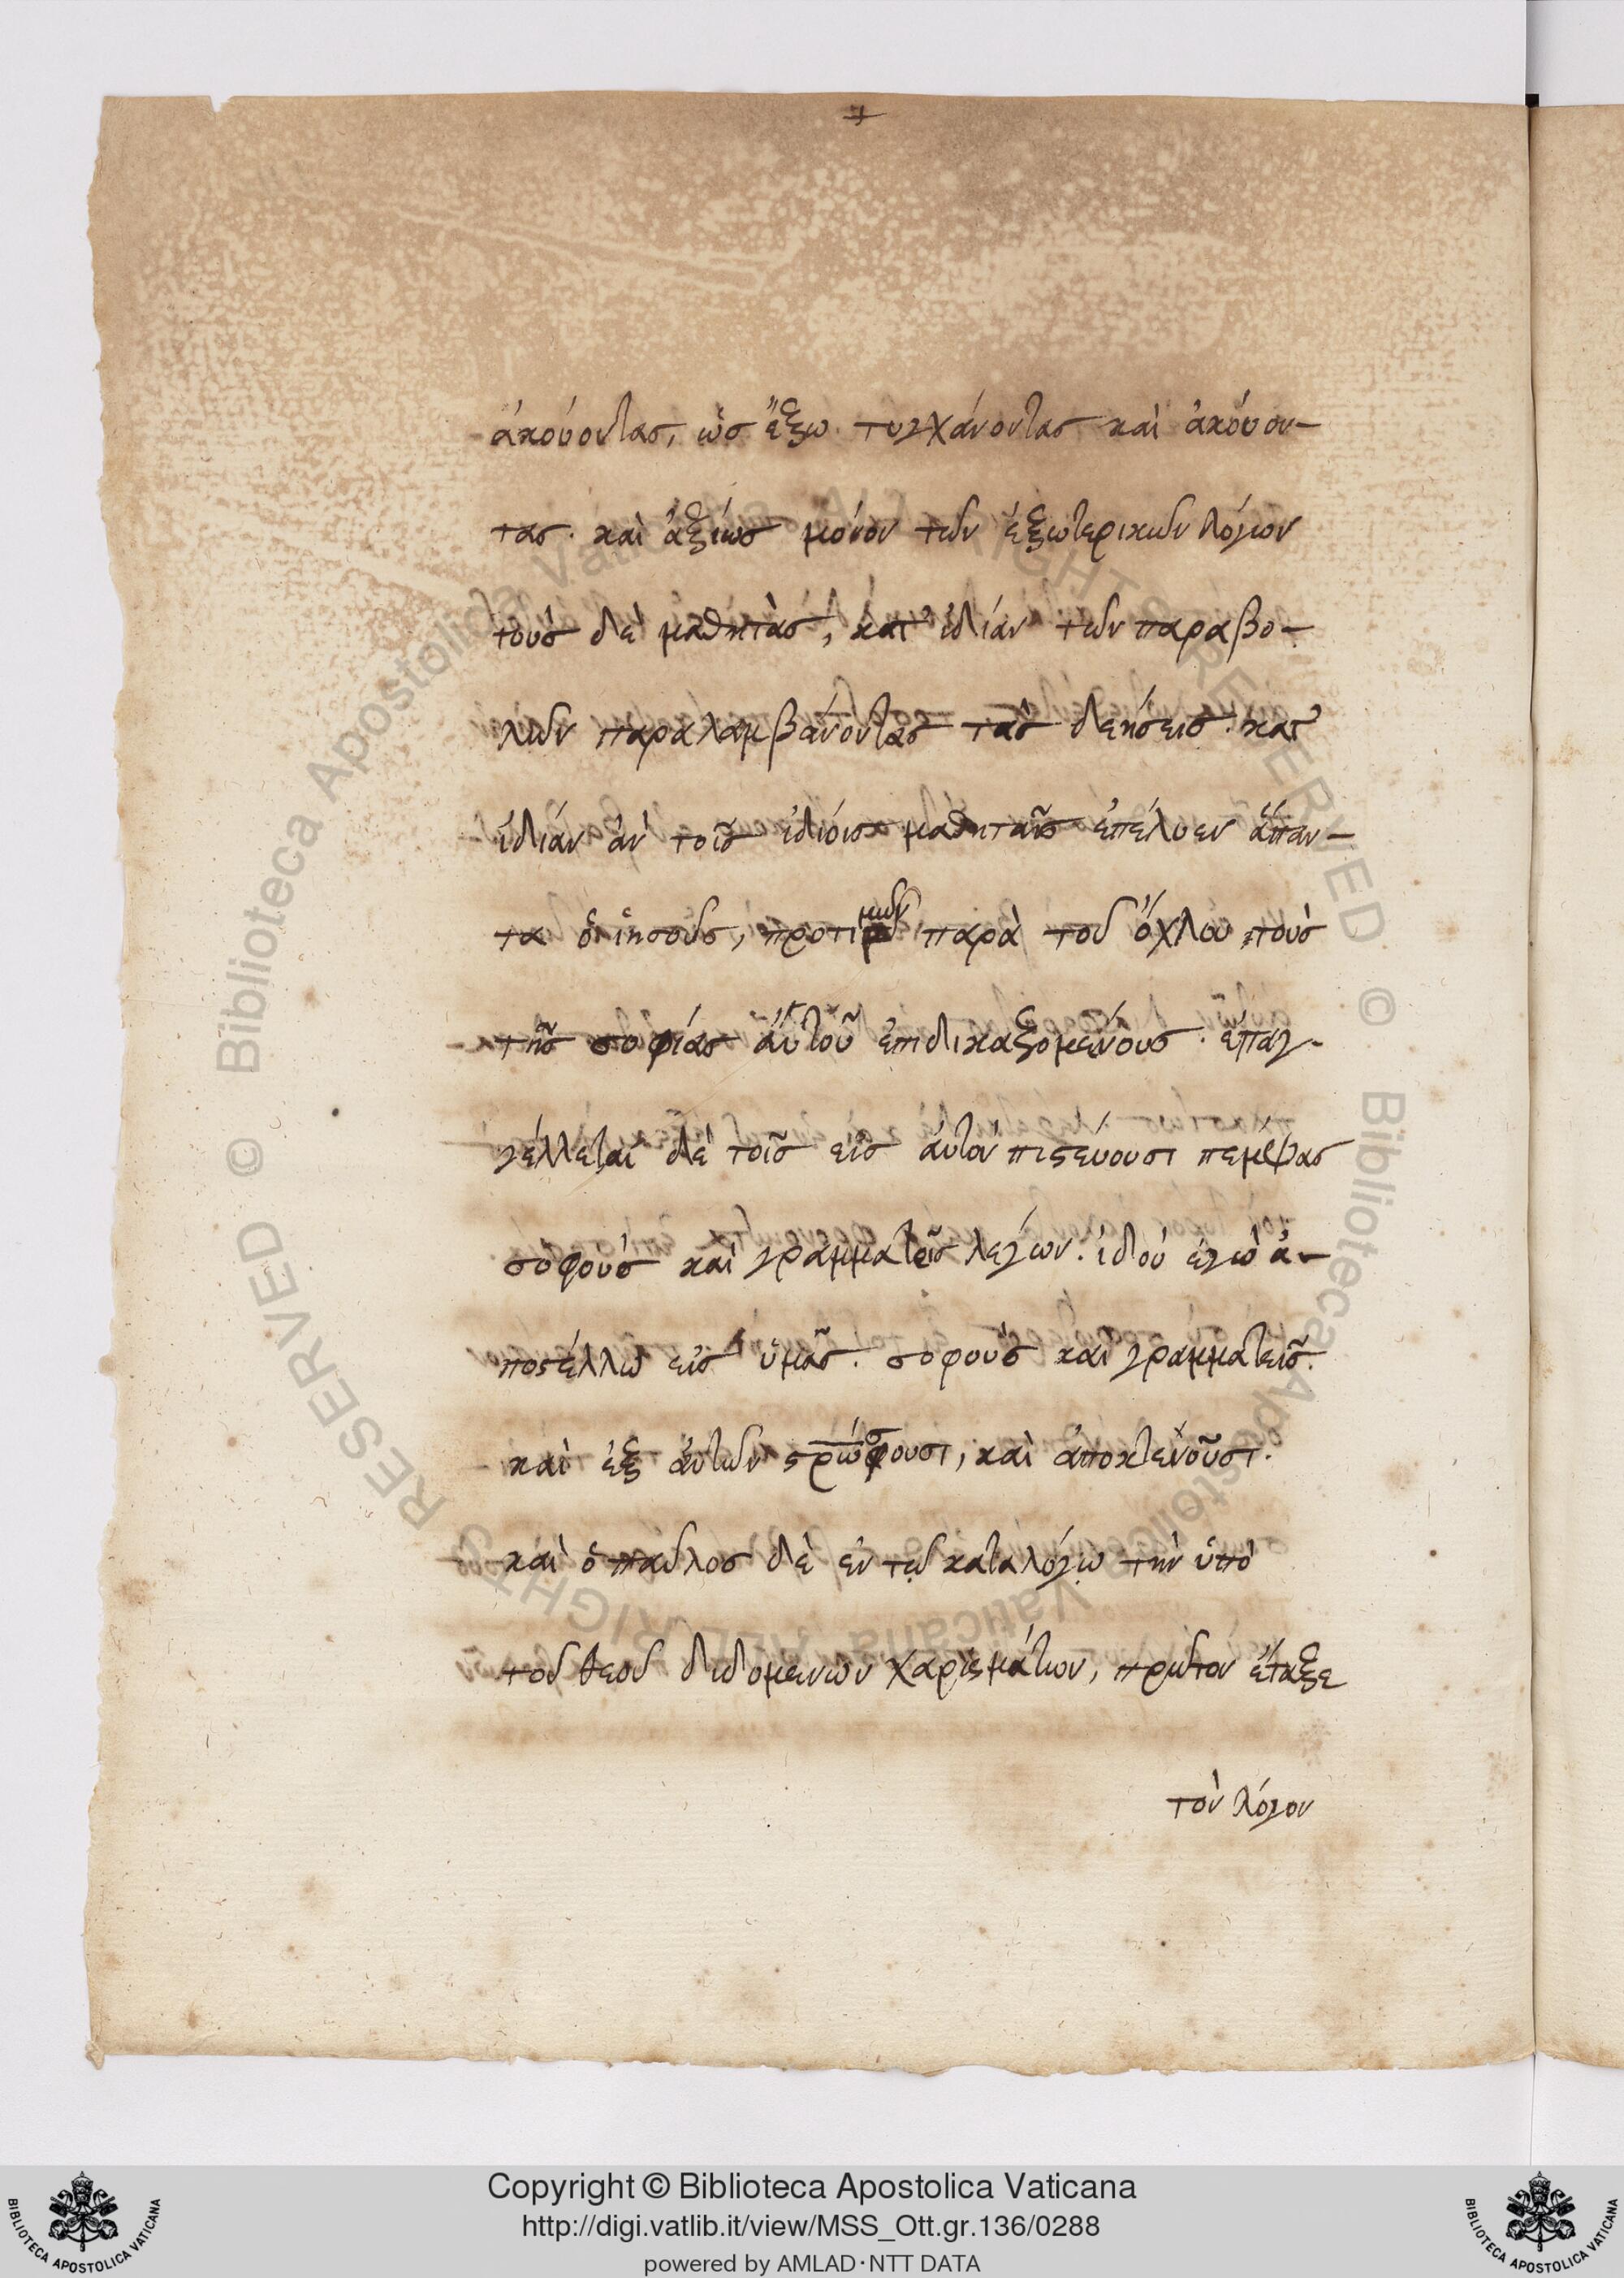 ἀκούοντας, ὡς ἔξω τυγχάνοντας καὶ ἀκόυον-
τας. καὶ ἀξίως μόνον τῶν ἐξωτερικῶν λόγων
τοὺς δὲ μαθητὰς, κατ' ἰδίαν τῶν παραβο-
λῶν παραλαμβάνοντας τὰς δεήσεις. κατ'
ἰδίαν ἀν τοῖς ἰδίοις μαθηταῖς ἐπέλυεν ἅπαν-
τα ὁ ἰησοῦς, προτιμῶν παρὰ τοῦ ὄχλου τοὺς
τῆς σοφίας ἀυτοῦ ἐπιδικαξομένους. ἐπαγ-
γέλλεται δὲ τοῖς εἰς ἀυτὸν πιςέυουσι πεμψας
σοφοὺς καὶ γραμματεῖς λεγων. ἰδοὺ ἐγὼ ἀ-
ποςέλλω εἰς ὑμᾶς. σοφοὺς καὶ γραμματεῖς.
καὶ ἐξ ἀυτῶν ςρώσουσι, καὶ ἀποκτενοῦσι.
καὶ ὁ παῦλος δὲ ἐν τῷ καταλόγῳ τὴν ὑπὸ
τοῦ θεοῦ διδομενων χαρισμάτων, πρῶτον ἔταξε
τὸν λόγον
Copyright © Biblioteca Apostolica Vaticana
http://digi.vatlib.it/view/MSS_Ott.gr.136/0288
powered by AMLAD·NTT DATA
BIBLIOTECA APOSTOLICA VATICANA
BIBLIOTECA APOSTOLICA VATICANA
© Biblioteca Apostolica Vaticana ALL RIGHTS RESERVED
© Biblioteca Apostolica Vaticana ALL RIGHTS RESERVED